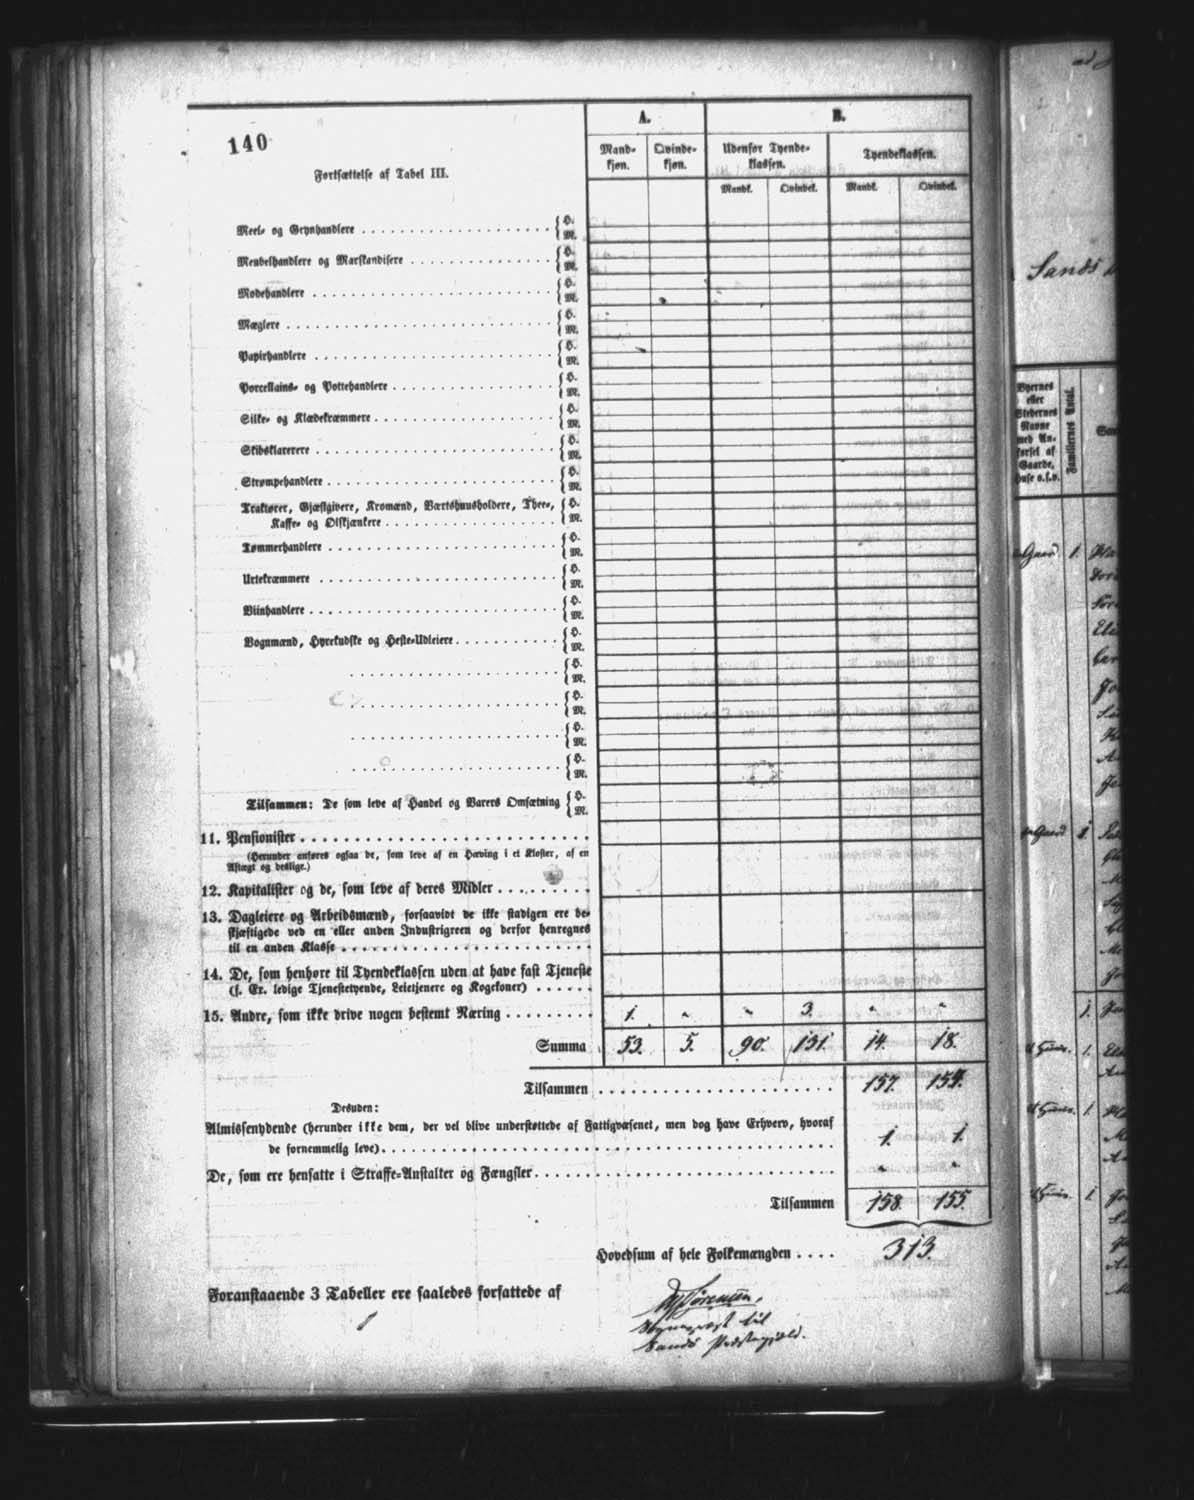 140
Fortsættelse af Tabel III.
A.
B.
Mand-
kjøn.
Qvinde-
kjøn.
Udenfor Tyende-
klassen.
Tyendeklassen.
Mandk.
Qvindek.
Mandk.
Qvindek.
Meel- og Grynhandlere { H.
M.
Meubelhandlere og Marskandisere { H.
M.
Modehandlere { H.
M.
Mæglere { H.
M.
Papirhandlere { H.
M.
Porcellains- og Pottehandlere { H.
M.
Silke- og Klædekræmmere { H.
M.
Skibsklarerere { H.
M.
Strømpehandlere { H.
M.
Traktører, Gjæstgivere, Kromænd, Værtshuusholdere, Thee-, { H.
Kaffe- og Ølskjænkere M.
Tømmerhandlere { H.
M.
Urtekræmmere { H.
M.
Viinhandlere { H.
M.
Vognmænd, Hyrekudske og Heste-Udleiere { H.
M.
{ H.
M.
{ H.
M.
{ H.
M.
{ H.
M.
Tilsammen: De som leve af Handel og Varers Omsætning { H.
M.
11. Pensionister
(Herunder anføres ogsaa de, som leve af en Hæving i et Kloster, af en
Aftægt og deslige.)
12. Kapitalister og de, som leve af deres Midler
13. Dagleiere og Arbeidsmænd, forsaavidt de ikke stadigen ere be-
skjæftigede ved en eller anden Industrigreen og derfor henregnes
til en anden Klasse
14. De, som henhøre til Tyendeklassen uden at have fast Tjeneste
(f. Ex. ledige Tjenestetyende, Leietjenere og Kogekoner)
15. Andre, som ikke drive nogen bestemt Næring 1. " " 3. " "
Summa 53. 5. 90. 131. 14. 18.
Tilsammen 157. 154.
Desuden:
Almissenydende (herunder ikke dem, der vel blive understøttede af Fattigvæsenet, men dog have Erhverv, hvoraf
de fornemmelig leve) 1. 1.
De, som ere hensatte i Straffe-Anstalter og Fængsler " "
Tilsammen 158. 155.
Hovedsum af hele Folkemængden 313.
Foranstaaende 3 Tabeller ere saaledes forfattede af
Sørensen,
Sognepræst til
Sands Præstegjæld.
Sands
Byernes
eller
Stedernes
Navne
med An-
førsel af
Gaarde,
Huse o.s.v.
Familiernes Antal.
Gaard 1.
Gaard 1.
1.
1.
1.
1.